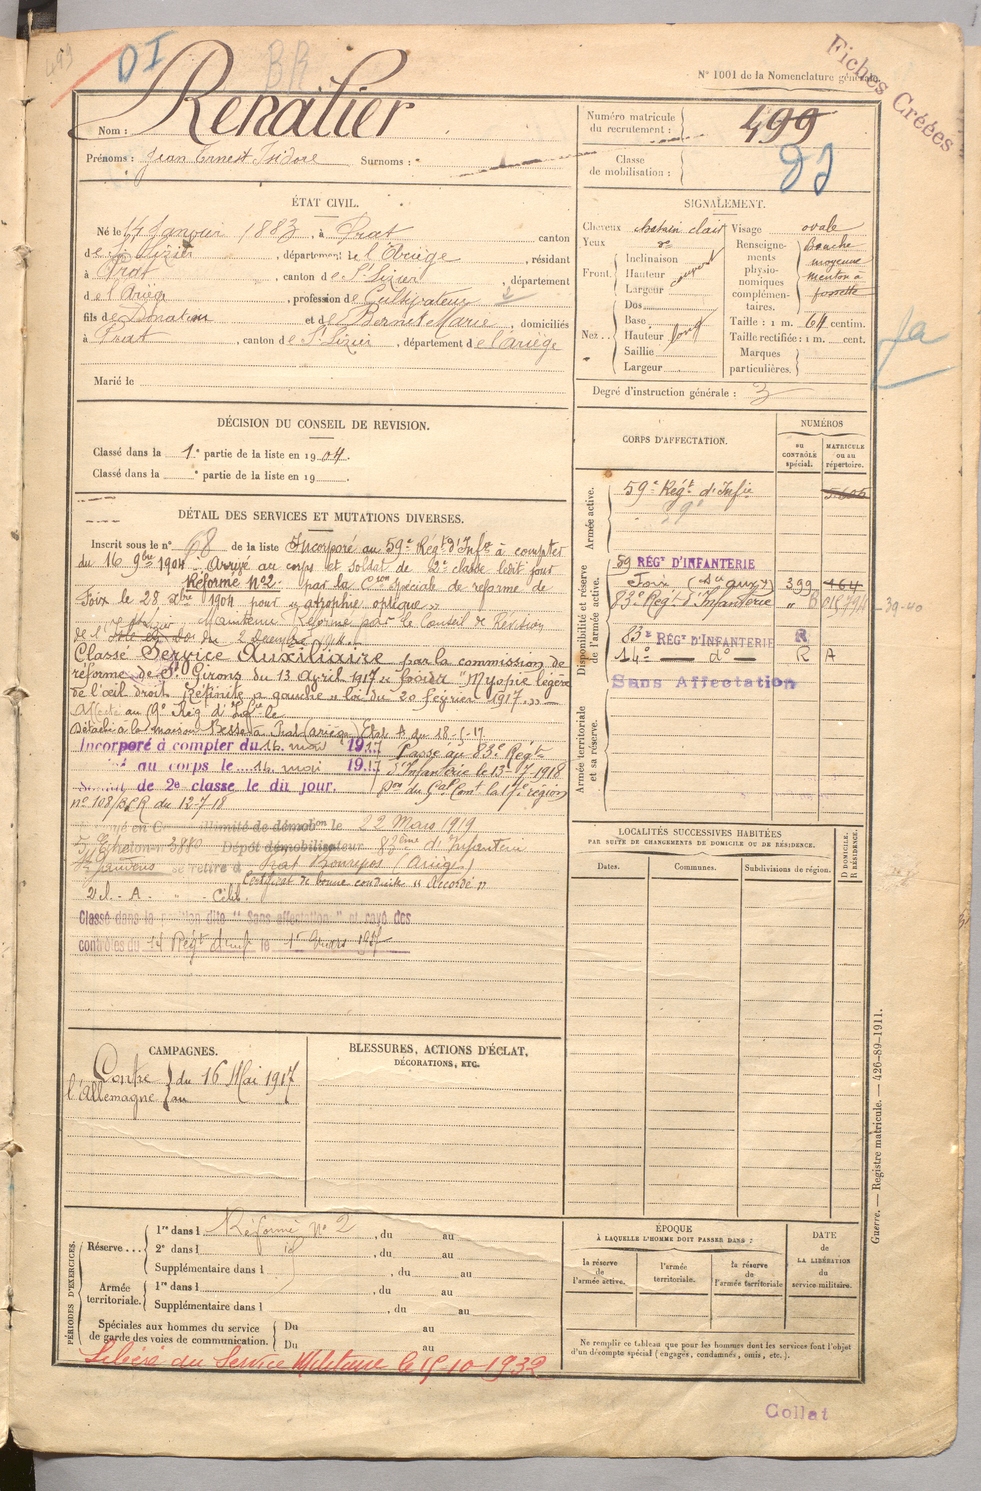 DI
BR
N° 1001 de la Nomenclature générale
Fiches Créées
Nom : Renalier
Prénoms : Jean Ernest Isidore Surnoms :
Numéro matricule du recrutement : 499
Classe de mobilisation :
ÉTAT CIVIL.
Né le 14 Janvier 1883, à Prat canton
de St Lizier, département de l'Ariège, résidant
à Prat, canton de St Lizier, département
de l'Ariège, profession de Cultivateur
fils de Donatien et de Bernet Marie, domiciliés
à Prat, canton de St Lizier, département de l'Ariège
Marié le
SIGNALEMENT.
Cheveux chatain clair
Yeux do
Front. Inclinaison
Hauteur couvert
Largeur
Nez. Dos
Base
Hauteur long
Saillie
Largeur
Visage ovale
Renseignements physionomiques complémentaires. Bouche moyenne menton à fossette
Taille : 1 m. 64 centim.
Taille rectifiée : 1 m. cent.
Marques particulières.
Degré d'instruction générale : 3
DÉCISION DU CONSEIL DE REVISION.
Classé dans la 1e partie de la liste en 1904.
Classé dans la e partie de la liste en 19
DÉTAIL DES SERVICES ET MUTATIONS DIVERSES.
Inscrit sous le n° 68 de la liste Incorporé au 59e Régt d'Infie à compter
du 16 9bre 1904 Arrivé au corps et soldat de 2e classe ledit jour
Réformé no2 par la Con spéciale de réforme de
Foix le 28 xbre 1904 pour « atrophie optique »
Maintenu Réformé par le Conseil de Révision
de l'Ariège du 2 Décembre 1914
Classé Service Auxiliaire par la commission de
réforme de St Girons du 13 Avril 1917 "Myopie légère
de l'œil droit Rétinite a gauche » loi du 20 février 1917 »
Affecté au 9e Rég d'Infie le
Détaché à la maison Besse à Prat (Ariège) Etat A du 18-5-17
Incorporé à compter du 16 mai 1917 Passé au 83e Régt
au corps le 16 mai 1917 d'Infanterie le 13-7 1918
de 2e classe le dit jour. Don du Gal Comt la 17e région
no 108/BCR du 12-7-18
en illimité de démobon le 22 Mars 1919
Echelon n° Dépôt démobilisateur 83ème d'Infanterie
se retire à Prat Bonrepos (Ariège)
Certificat de bonne conduite "Accordé"
Classé dans la position dite "Sans affectation" et rayé des
contrôles du 14 Régt d'inf le 1er Mars 1927
CORPS D'AFFECTATION.
NUMÉROS
au CONTRÔLE spécial.
MATRICULE ou au répertoire.
Armée active.
59e Régt d'Infie
Disponibilité et réserve de l'armée active.
59 RÉGt D'INFANTERIE
Foix (Sce auxre) 399 164
83e Régt d'Infanterie
39-40
83e RÉGt D'INFANTERIE R
14e do R A
Sans Affectation
Armée territoriale et sa réserve.
LOCALITÉS SUCCESSIVES HABITÉES
PAR SUITE DE CHANGEMENTS DE DOMICILE OU DE RÉSIDENCE.
Dates.
Communes.
Subdivisions de région.
D DOMICILE. R RÉSIDENCE.
CAMPAGNES.
Contre l'Allemagne
du 16 Mai 1917
au
BLESSURES, ACTIONS D'ÉCLAT,
DÉCORATIONS, ETC.
PÉRIODES D'EXERCICES.
Réserve... 1re dans l Réformé no 2, du au
2e dans l, du au
Supplémentaire dans l, du au
Armée territoriale. 1re dans l, du au
Supplémentaire dans l, du au
Spéciales aux hommes du service de garde des voies de communication. Du au
Du au
Libéré du Service Militaire le 15-10-1932
ÉPOQUE
À LAQUELLE L'HOMME DOIT PASSER DANS :
la réserve de l'armée active.
l'armée territoriale.
la réserve de l'armée territoriale
DATE de LA LIBÉRATION du service militaire.
Ne remplir ce tableau que pour les hommes dont les services font l'objet
d'un décompte spécial (engagés, condamnés, omis, etc.).
Guerre. — Registre matricule. — 426-89-1911.
Collat